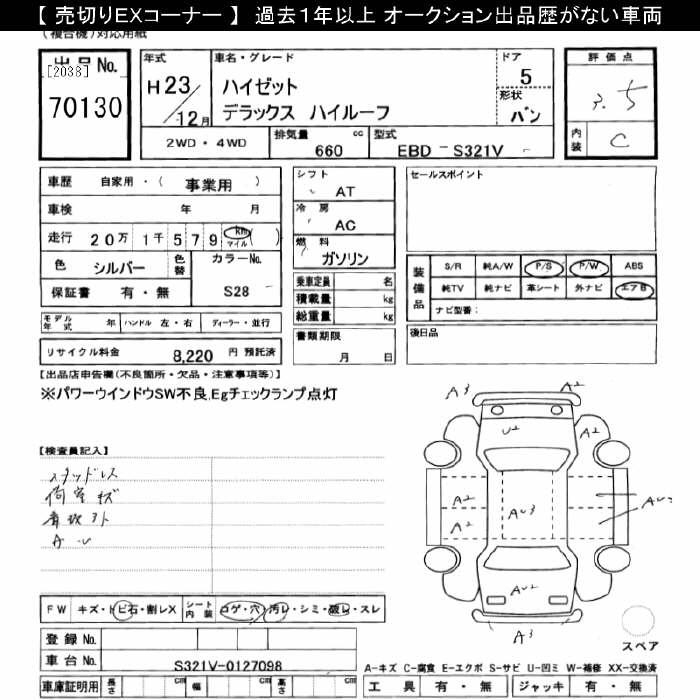 【 売切りEXコーナー 】 過去1年以上 オークション出品歴がない車両
(複合機)対応用紙
出品No.
[2038]
70130
年式
H23/12月
車名・グレード
ハイゼット
デラックス ハイルーフ
ドア
5
形状
バン
評価点
3.5
内装
C
2WD・4WD
排気量
660
cc
型式
EBD - S321V -
車歴 自家用・( 事業用 )
車検 年 月
走行 20万 1千 5 7 9 km マイル ( )
色 シルバー
色替
カラーNo.
S28
保証書 有・無
シフト
AT
冷房
AC
燃料
ガソリン
乗車定員 名
積載量 kg
総重量 kg
書類期限
月 日
セールスポイント
装備品
S/R 純A/W P/S P/W ABS
純TV 純ナビ 革シート 外ナビ エアB
ナビ型番:
後日品
モデル年式 年 ハンドル 左・右 ディーラー・並行
リサイクル料金 8,220 円 預託済
【出品店申告欄(不良箇所・欠品・注意事項等)】
※パワーウインドウSW不良,Egチェックランプ点灯
【検査員記入】
スタッドレス
荷室キズ
A・U
A3
A2
U2
A2
A2
A2
AU3
AU2
A3
FW キズ・トビ石・割レX
シート内装 コゲ・穴 汚レ・シミ・破レ・スレ
登録No.
車台No. S321V-0127098
車庫証明用 長さ cm 幅 cm 高さ cm
スペア
A-キズ C-腐食 E-エクボ S-サビ U-凹ミ W-補修 XX-交換済
工具 有・無 ジャッキ 有・無